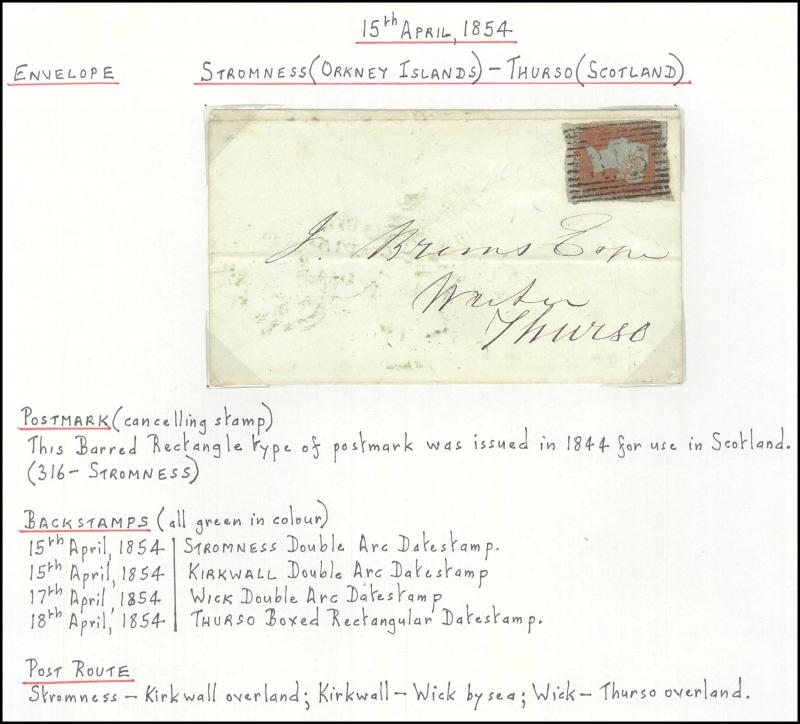 15th APRIL, 1854
ENVELOPE STROMNESS (ORKNEY ISLANDS) - THURSO (SCOTLAND)
J. Brims Esqr
Writer
Thurso
POSTMARK (cancelling stamp)
This Barred Rectangle type of postmark was issued in 1844 for use in Scotland.
(316 - STROMNESS)
BACKSTAMPS (all green in colour)
15th April, 1854 | STROMNESS Double Arc Datestamp.
15th April, 1854 | KIRKWALL Double Arc Datestamp
17th April, 1854 | WICK Double Arc Datestamp
18th April, 1854 | THURSO Boxed Rectangular Datestamp.
POST ROUTE
Stromness - Kirkwall overland; Kirkwall - Wick by sea; Wick - Thurso overland.